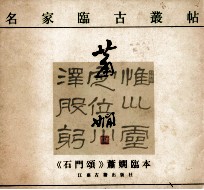 名家臨古叢帖
蕭嫻
惟巛靈
定位川
澤股躬
《石門頌》蕭嫻臨本
江蘇古籍出版社